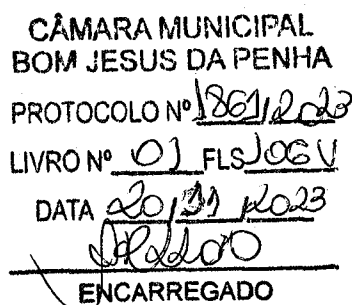 CÂMARA MUNICIPAL
BOM JESUS DA PENHA
PROTOCOLO Nº 1861/2023
LIVRO Nº 01 FLS 106 V
DATA 20/11/2023
ENCARREGADO